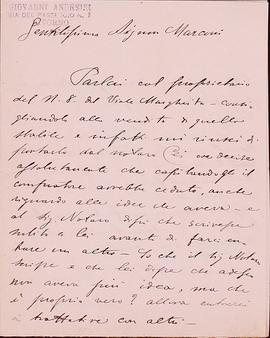 GIOVANNI ANDREINI
LIVORNO
Gentilissimo Signor Marconi
Parlai col proprietario
del N. 8. del Viale Margherita - consi-
gliandolo alla vendita di quello
stabile e infatti mi riuscì
portarlo dal notaro ove decise
assolutamente che capitandogli il
compratore avrebbe ceduto, anche
riguardo alle idee che aveva - e
al Sig Notaro disse che scrivesse
subito a lei avanti di farci en-
trare un altro - So che il Sig Notaro
scrisse e che lei disse che adesso
non aveva più idea, ma che
è proprio vero? allora entrerei
a trattative con altri -